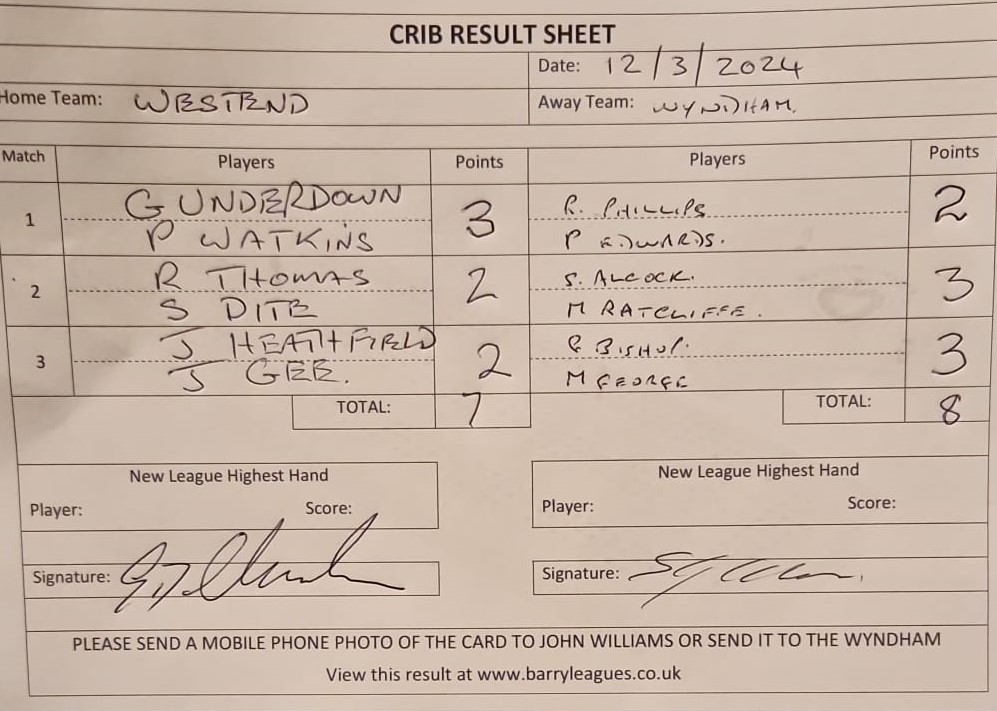 CRIB RESULT SHEET
Date: 12/3/2024
Home Team: WESTEND Away Team: WYNDHAM.
Match Players Points Players Points
1 G UNDERDOWN 3 R. PHILLIPS 2
P WATKINS P EDWARDS.
2 R THOMAS 2 S. ALCOCK. 3
S DITE M RATCLIFFE.
3 J HEATHFIELD 2 R BISHOP. 3
J GEE. M GEORGE
TOTAL: 7 TOTAL: 8
New League Highest Hand New League Highest Hand
Player: Score: Player: Score:
Signature: Signature:
PLEASE SEND A MOBILE PHONE PHOTO OF THE CARD TO JOHN WILLIAMS OR SEND IT TO THE WYNDHAM
View this result at www.barryleagues.co.uk